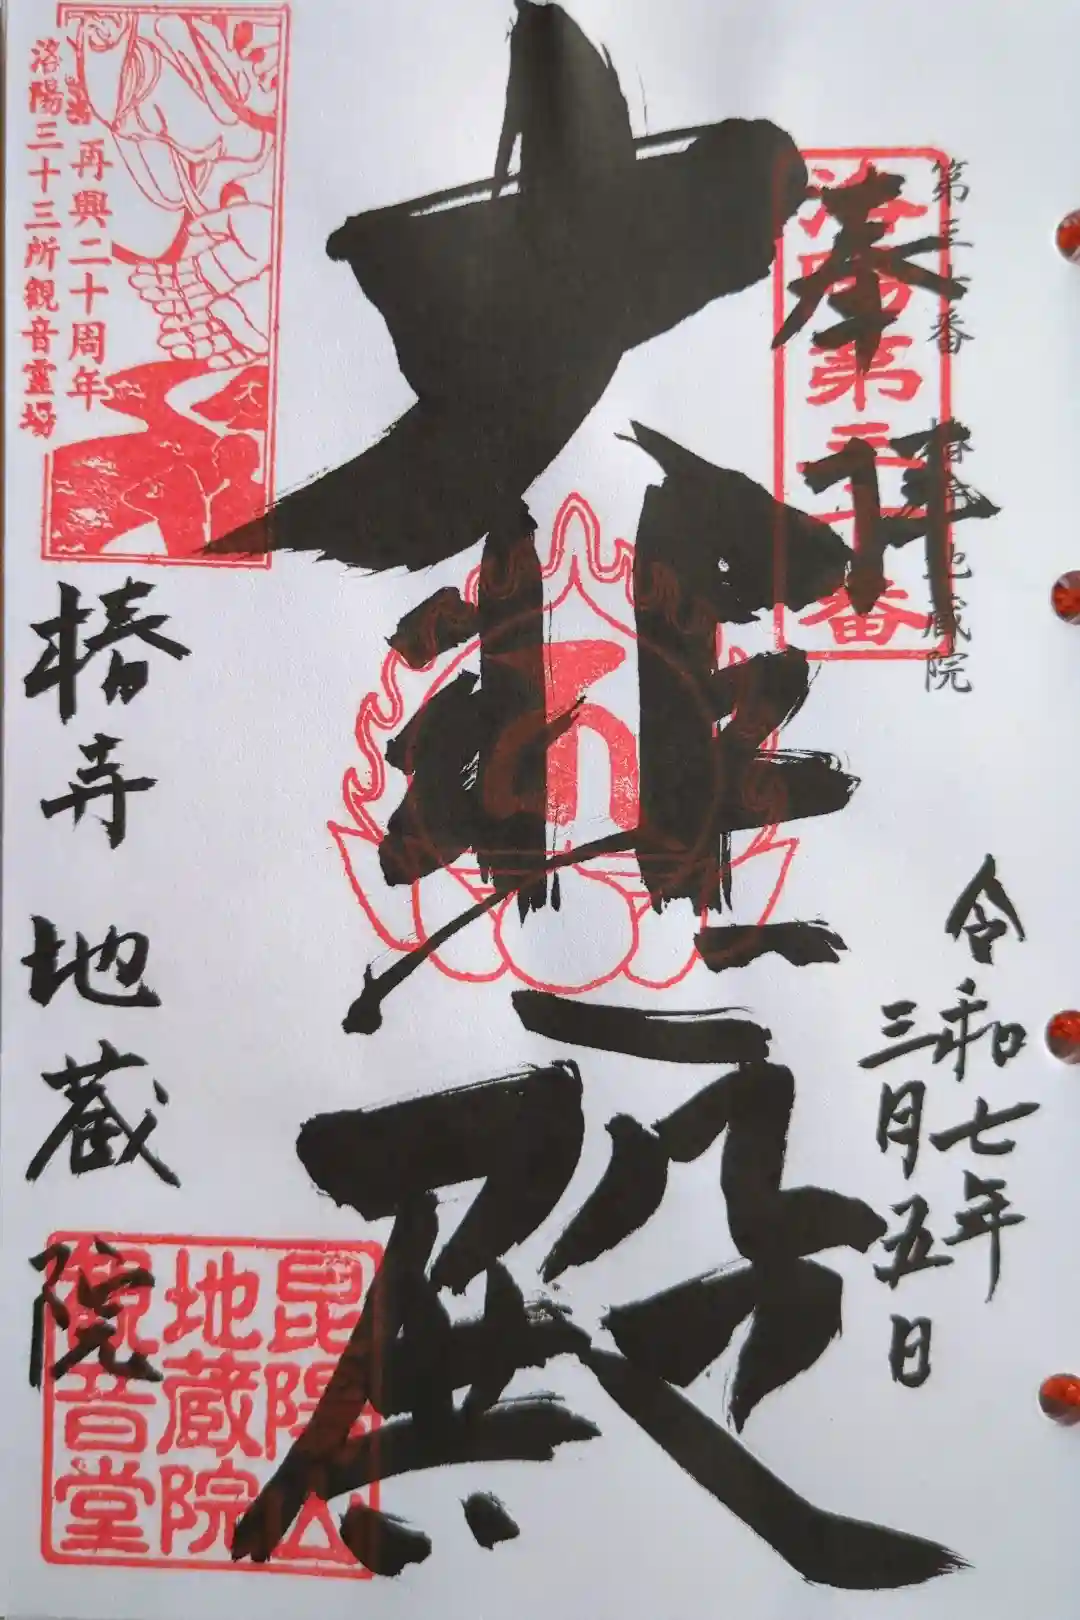 第三十番 椿寺 地蔵院
洛陽第三十番
奉拝
令和七年
三月五日
大悲殿
再興二十周年
洛陽三十三所観音霊場
椿寺 地蔵院
昆陽山
地蔵院
観音堂